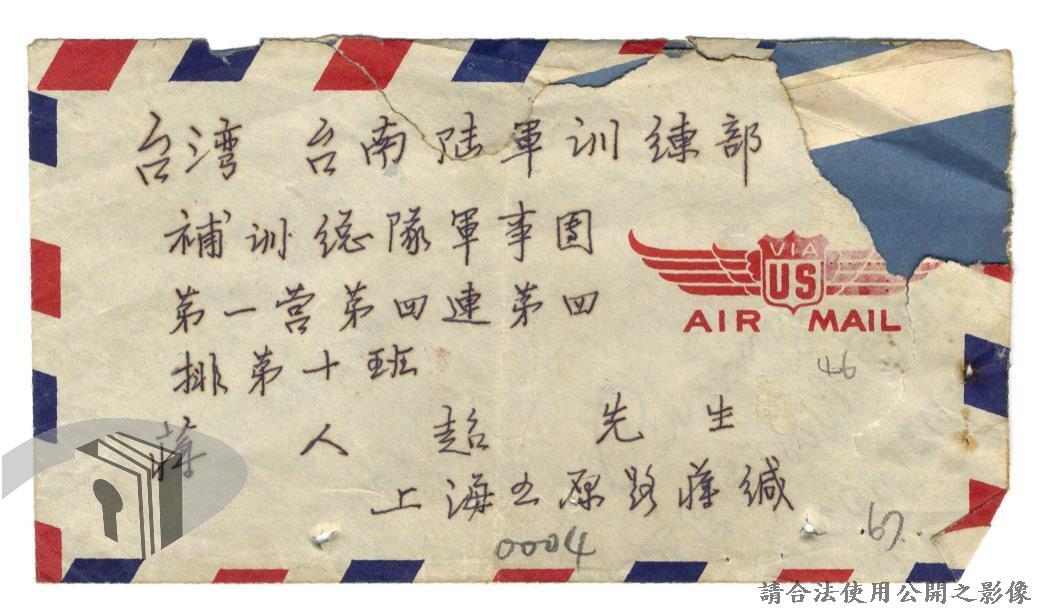 台湾 台南陆軍训練部
補训总隊軍事团
VIA
US
AIR MAIL
第一营第四連第四
46
排第十班
蔣 人 超 先 生
上海五原路蔣缄
67
0004
請合法使用公開之影像